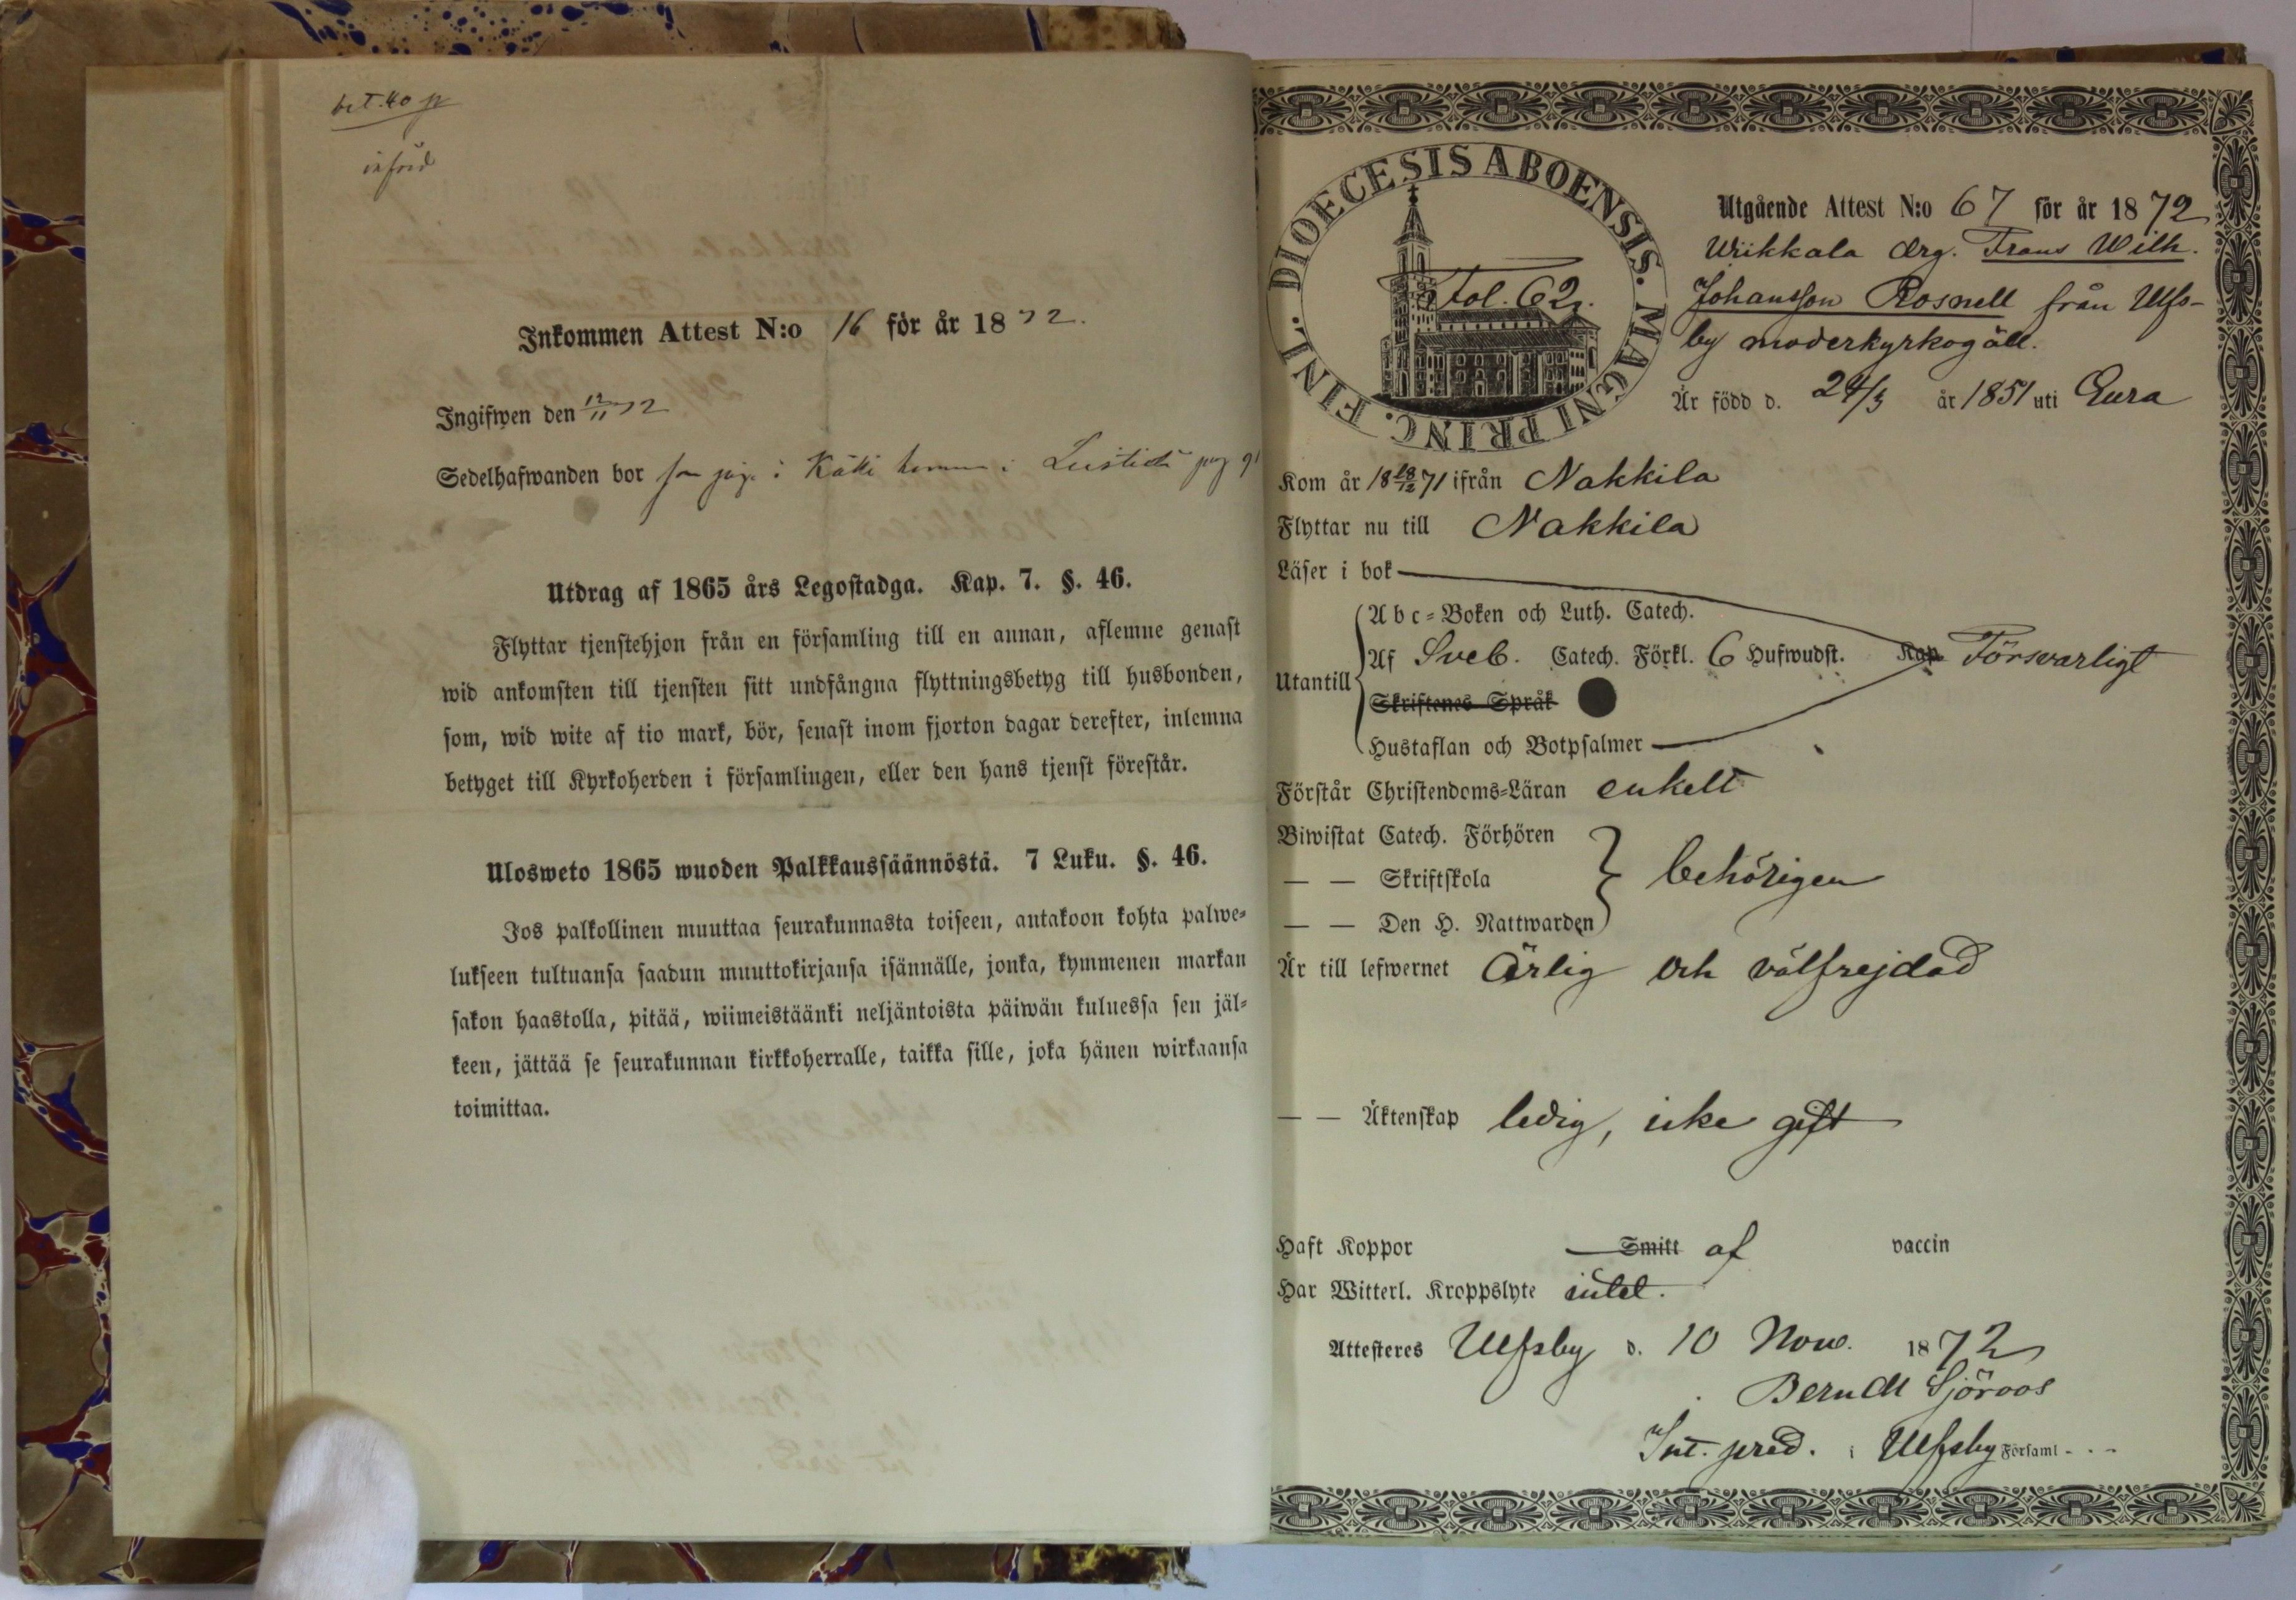 bet. 40 p
införd
Inkommen Attest N:o 16 för år 1872.
Ingifwen den 12/11 72
Sedelhafwanden bor i
Utdrag af 1865 års Legostadga. Kap. 7. §. 46.
Flyttar tjenstehjon från en församling till en annan, aflemne genast
wid ankomsten till tjensten sitt undfångna flyttningsbetyg till husbonden,
som, wid wite af tio mark, bör, senast inom fjorton dagar derefter, inlemna
betyget till Kyrkoherden i församlingen, eller den hans tjenst förestår.
Ulosweto 1865 wuoden Palkkaussäännöstä. 7 Luku. §. 46.
Jos palkollinen muuttaa seurakunnasta toiseen, antakoon kohta palwe-
lukseen tultuansa saadun muuttokirjansa isännälle, jonka, kymmenen markan
sakon haastolla, pitää, wiimeistäänki neljäntoista päiwän kuluessa sen jäl-
keen, jättää se seurakunnan kirkkoherralle, taikka sille, joka hänen wirkaansa
toimittaa.
DIOECESIS ABOENSIS. MAGNI PRINC. FINL.
Fol. 62.
Utgående Attest N:o 67 för år 1872
Wiikkala drg. Frans Wilh.
Johansson Rosnell från Ulfs-
by moderkyrkogäll.
Är född d. 24/3 år 1851 uti Eura
Kom år 18 28/12 71 ifrån Nakkila
Flyttar nu till Nakkila
Läser i bok
Utantill
Abc-Boken och Luth. Catech.
Af Sveb. Catech. Förkl. 6 Hufwudst. Kap Försvarligt
Skriftenes Språk
Hustaflan och Botpsalmer
Förstår Christendoms-Läran enkelt
Biwistat Catech. Förhören
— — Skriftskola behörigen
— — Den H. Nattwarden
Är till lefwernet Ärlig och välfrejdad
— — Äktenskap ledig, icke gift
Haft Koppor Smitt af vaccin
Har Witterl. Kroppslyte intet.
Attesteres Ulfsby d. 10 Nov. 1872
Berndt Sjöroos
Int. pred. i Ulfsby Församl - - -